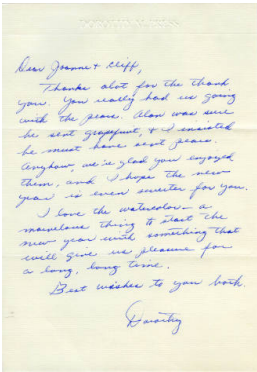 Dear Joanne & Cliff,
Thanks alot for the thank
you. You really had us going
with the pears. Alan was sure
he sent grapefruit, & I insisted
he must have sent pears.
Anyhow, we're glad you enjoyed
them, and I hope the new
year is even sweeter for you.
I love the watercolor - a
marvelous thing to start the
new year with something that
will give us pleasure for
a long, long time.
Best wishes to you both.
Dorothy